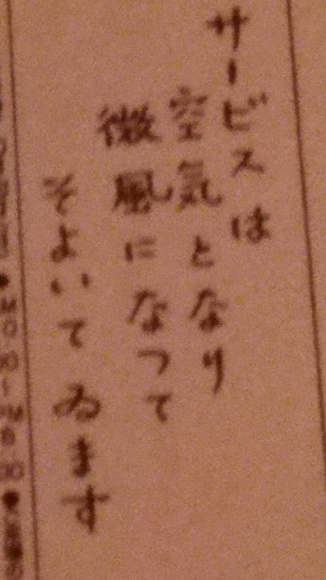 サービスは
空気となり
微風になつて
そよいてゐます